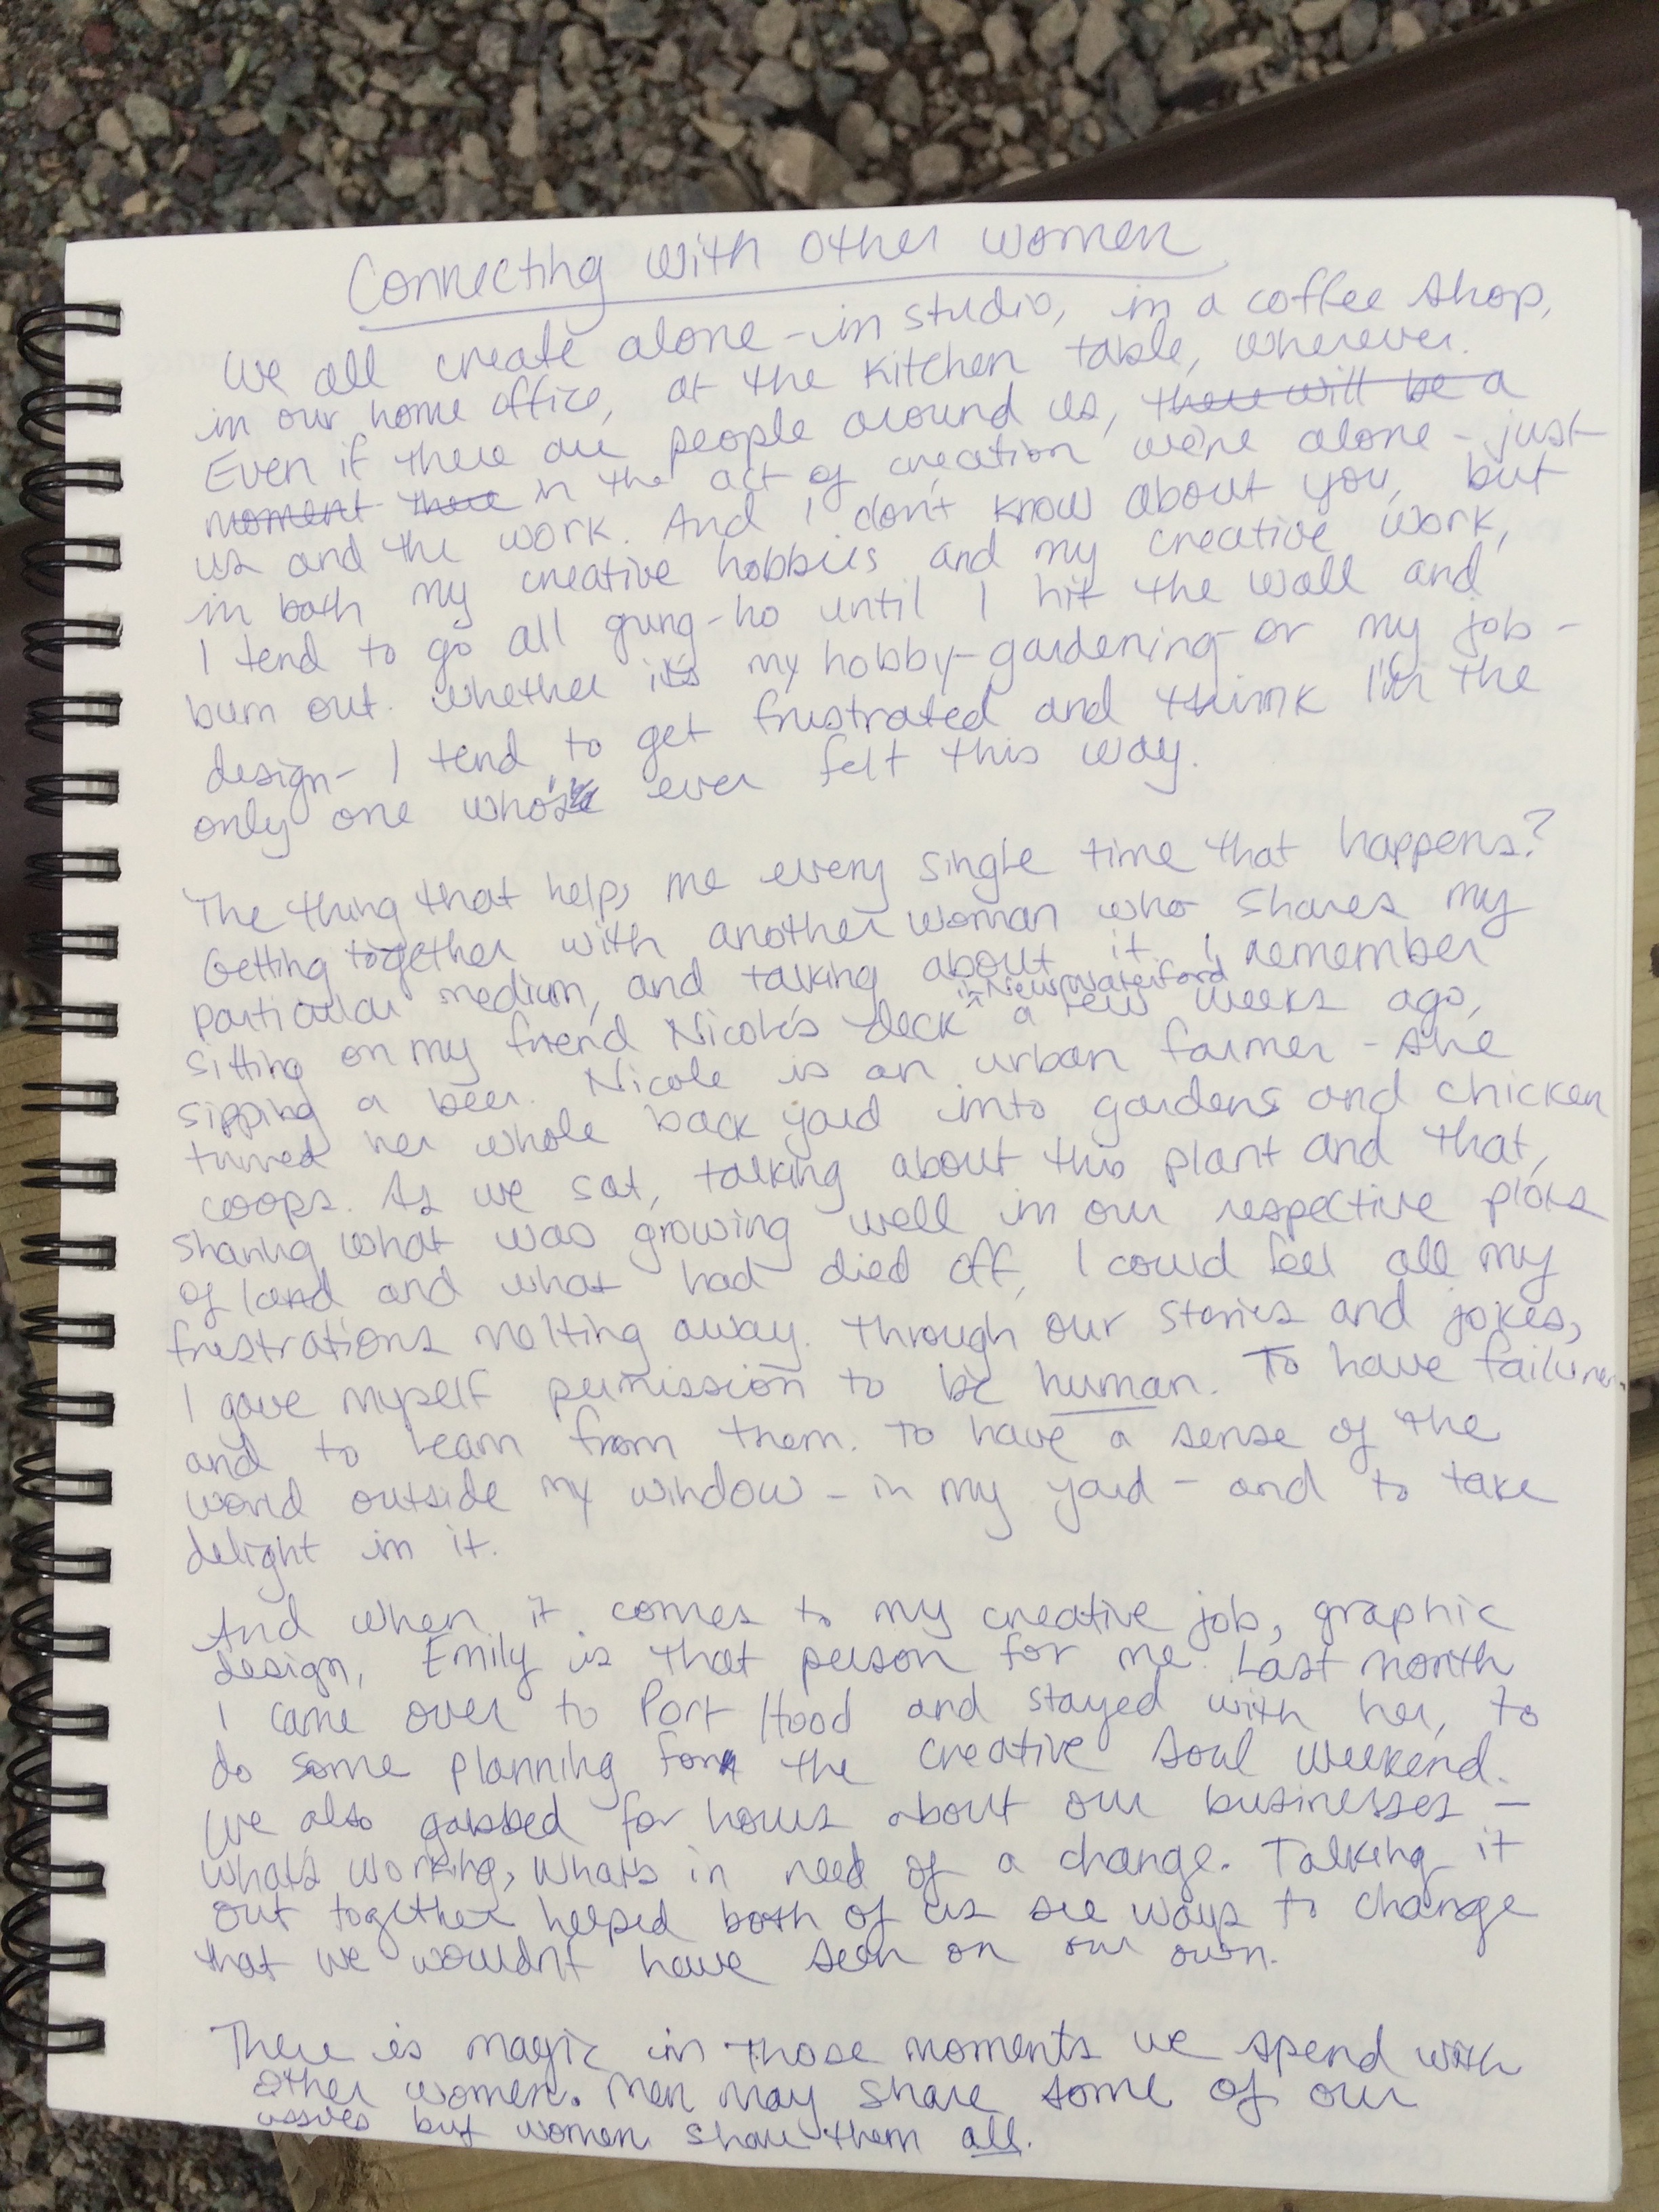 Connecting with other women
We all create alone - in studio, in a coffee shop,
in our home office, at the kitchen table, wherever.
Even if there are people around us, there will be a
moment there in the act of creation we're alone - just
us and the work. And I don't know about you, but
in both my creative hobbies and my creative work,
I tend to go all gung-ho until I hit the wall and
burn out. Whether it's my hobby - gardening - or my job -
design - I tend to get frustrated and think I'm the
only one who's ever felt this way.
The thing that helps me every single time that happens?
Getting together with another woman who shares my
particular medium, and talking about it. I remember
in New Waterford
sitting on my friend Nicole's deck ^ a few weeks ago,
sipping a beer. Nicole is an urban farmer - she
turned her whole back yard into gardens and chicken
coops. As we sat, talking about this plant and that,
sharing what was growing well in our respective plots
of land and what had died off, I could feel all my
frustrations melting away. Through our stories and jokes,
I gave myself permission to be human. To have failures
and to learn from them. To have a sense of the
world outside my window - in my yard - and to take
delight in it.
And when it comes to my creative job, graphic
design, Emily is that person for me. Last month
I came over to Port Hood and stayed with her, to
do some planning for the Creative Soul Weekend.
We also gabbed for hours about our businesses -
what's working, what's in need of a change. Talking it
out together helped both of us see ways to change
that we wouldn't have seen on our own.
There is magic in those moments we spend with
other women. Men may share some of our
issues but women share them all.